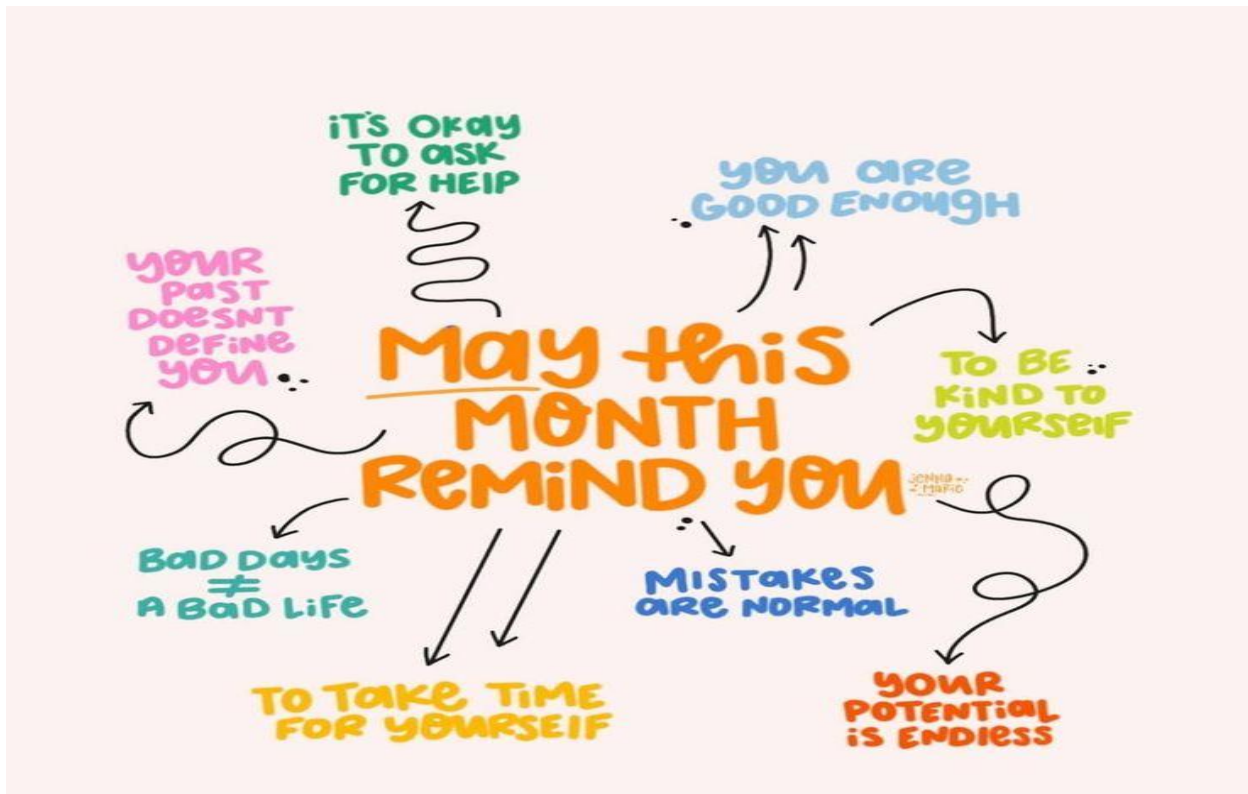 iT'S OKay
TO asK
FOR HElP
you aRe
GOOD ENOugH
youR
PaST
DOesNT
DeFiNe
you
May this
MONTH
ReMiND you
TO BE
KiND TO
youRSelF
jeNNa
MaRiO
BaD Days
≠
A BaD LiFe
MISTaKes
aRe NORMal
TO TaKe TiME
FOR youRSElF
youR
POTENTial
iS ENDless